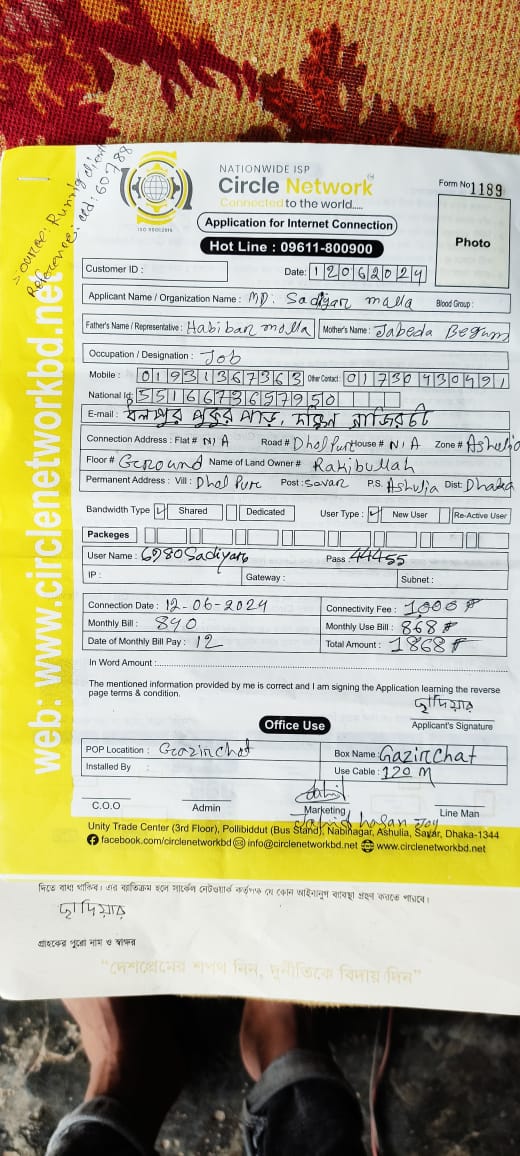 Source: Running client
Reference: crd: 60788
web: www.circlenetworkbd.net
ISO 9001:2015
NATIONWIDE ISP
Circle Network
Connected to the world.....
Application for Internet Connection
Hot Line : 09611-800900
Form No 1189
Photo
Customer ID :
Date: 12062024
Applicant Name / Organization Name : MD. Sadiyar malla Blood Group :
Father's Name / Representative : Habibar molla Mother's Name : Jabeda Begum
Occupation / Designation : Job
Mobile : 01931367363 Other Contact : 01730430491
National Id 5516673657950
E-mail : পুকুর পাড়,
Connection Address : Flat# N/A Road # Dhol Pur House # N/A Zone # Ashulia
Floor # Ground Name of Land Owner # Rakibullah
Permanent Address : Vill : Dhol Pure Post : Savar P.S. Ashulia Dist: Dhaka
Bandwidth Type Shared Dedicated User Type : New User Re-Active User
Packeges
User Name : 6980Sadiyar Pass : 44455
IP : Gateway : Subnet :
Connection Date : 12-06-2024 Connectivity Fee : 1000
Monthly Bill : 840 Monthly Use Bill : 868
Date of Monthly Bill Pay : 12 Total Amount : 1868
In Word Amount :
The mentioned information provided by me is correct and I am signing the Application learning the reverse
page terms & condition.
ছাদিয়ার
Applicant's Signature
Office Use
POP Locatition : Gazirchat Box Name : Gazirchat
Installed By : Use Cable : 120 M
C.O.O Admin Marketing Line Man
Jahid hasan Joy
Unity Trade Center (3rd Floor), Pollibiddut (Bus Stand), Nabinagar, Ashulia, Savar, Dhaka-1344
facebook.com/circlenetworkbd info@circlenetworkbd.net www.circlenetworkbd.net
দিতে বাধ্য থাকিব। এর ব্যতিক্রম হলে সার্কেল নেটওয়ার্ক কর্তৃপক্ষ যে কোন আইনানুগ ব্যবস্থা গ্রহণ করতে পারবে।
ছাদিয়ার
গ্রাহকের পুরো নাম ও স্বাক্ষর
“দেশপ্রেমের শপথ নিন, দুর্নীতিকে বিদায় দিন”